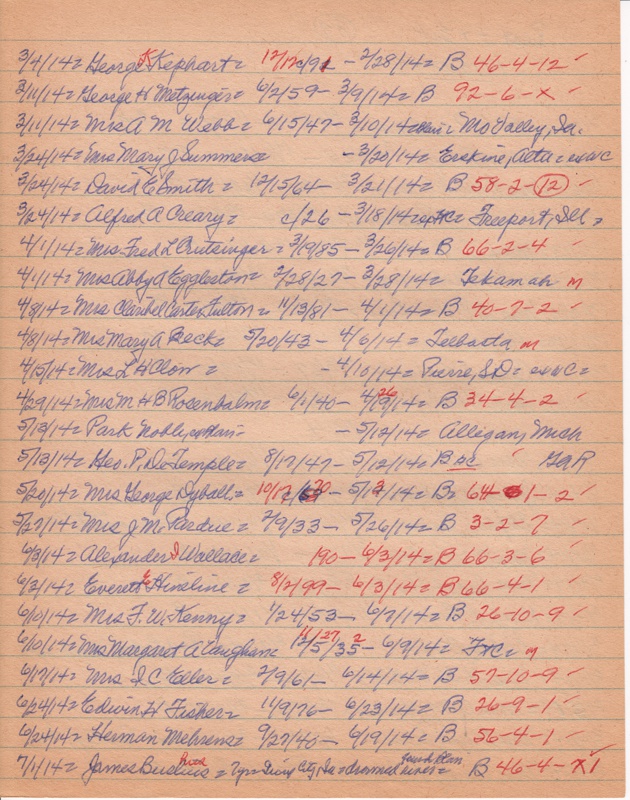 3/4/14= George K Kephart= 12/12/91 - 2/28/14= B 46-4-12 ✓
3/11/14= George H Metzinger= 6/2/59- 3/9/14= B 92-6-x ✓
3/11/14= Mrs A M Webb= 6/15/47- 3/10/14= Mo Valley, Ia.
3/24/14= Mrs Mary J Summers= -3/20/14= Erskine, Alta= exWC
3/24/14= David E Smith= 12/15/64- 3/21/14= B 58-2-12 ✓
3/24/14= Alfred A Creary= c/26 - 3/18/14= exHC= Freeport, Ill=
4/1/14= Mrs Fred L Crutsinger= 3/19/85- 3/26/14= B 66-2-4 ✓
4/1/14= Mrs Abby A Eggleston= 2/28/27- 3/28/14= Tekamah m
4/8/14= Mrs Claribel Carter Fulton= 11/13/81- 4/1/14= B 40-7-2 ✓
4/8/14= Mrs Mary A Beck= 5/20/43- 4/6/14= Telbasta m
4/15/14= Mrs L H Clow= -4/10/14= Pierre, SD= exWC=
4/29/14= Mrs M H B Rosenbalm= 6/1/40- 4/19/14= 26 B 34-4-2 ✓
5/13/14= Park Noble, - 5/12/14= Allegan, Mich
5/13/14= Geo. P. DeTemple= 8/17/47- 5/12/14= B oc ✓ GAR
5/20/14= Mrs George Dyball= 10/17/ 70 - 5/13/14= B= 64-1-2 ✓
5/27/14= Mrs J M Pardue= 2/9/33- 5/26/14= B 3-2-7 ✓
6/3/14= Alexander J Wallace= 190- 6/3/14= B 66-3-6 ✓
6/3/14= Everett E Hineline= 8/2/99- 6/3/14= B 66-4-1 ✓
6/10/14= Mrs F. W. Kenny= 1/24/53- 6/7/14= B 26-10-9 ✓
6/10/14= Mrs Margaret A Vaughan= 12/5/35 11/27 2- 6/9/14= FtC= m
6/17/14= Mrs I C Eller= 2/9/61- 6/14/14= B 57-10-9 ✓
6/24/14= Edwin H Fisher= 11/9/76- 6/23/14= B 26-9-1 ✓
6/24/14= Herman Mehrens= 9/27/40- 6/19/14= B 56-4-1 ✓
7/1/14= James = 7yr= Sioux City, Ia= drowned river= B 46-4-x1 ✓